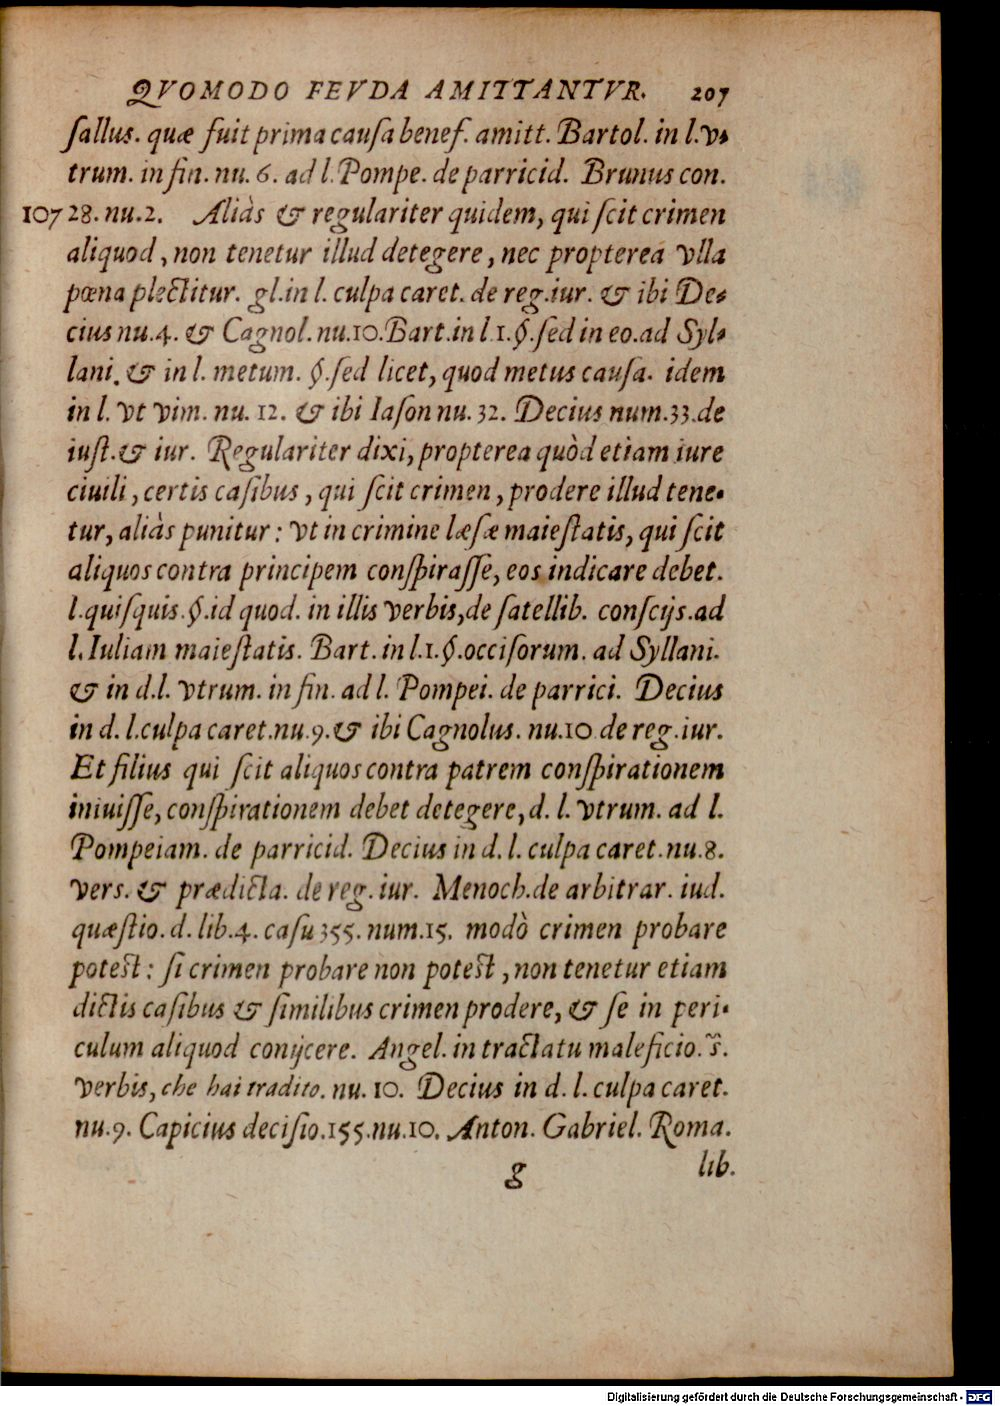 QVOMODO FEVDA AMITTANTVR. 207
ſallus. quæ fuit prima cauſa benef. amitt. Bartol. in l. v-
trum. in fin. nu. 6. ad l. Pompe. de parricid. Brunus con.
107 28. nu. 2. Aliàs & regulariter quidem, qui ſcit crimen
aliquod, non tenetur illud detegere, nec propterea vlla
pœna plectitur. gl. in l. culpa caret. de reg. iur. & ibi De-
cius nu. 4. & Cagnol. nu. 10. Bart. in l. 1. §. ſed in eo. ad Syl-
lani. & in l. metum. §. ſed licet, quod metus cauſa. idem
in l. vt vim. nu. 12. & ibi Iaſon nu. 32. Decius num. 33. de
iuſt. & iur. Regulariter dixi, propterea quòd etiam iure
ciuili, certis caſibus, qui ſcit crimen, prodere illud tene-
tur, aliàs punitur: vt in crimine læſæ maieſtatis, qui ſcit
aliquos contra principem conſpiraſſe, eos indicare debet.
l. quiſquis. §. id quod. in illis verbis, de ſatellib. conſcijs. ad
l. Iuliam maieſtatis. Bart. in l. 1. §. occiſorum. ad Syllani.
& in d. l. vtrum. in fin. ad l. Pompei. de parrici. Decius
in d. l. culpa caret. nu. 9. & ibi Cagnolus. nu. 10 de reg. iur.
Et filius qui ſcit aliquos contra patrem conſpirationem
iniuiſſe, conſpirationem debet detegere, d. l. vtrum. ad l.
Pompeiam. de parricid. Decius in d. l. culpa caret. nu. 8.
vers. & prædicta. de reg. iur. Menoch. de arbitrar. iud.
quæſtio. d. lib. 4. caſu 355. num. 15. modò crimen probare
poteſt: ſi crimen probare non poteſt, non tenetur etiam
dictis caſibus & ſimilibus crimen prodere, & ſe in peri-
culum aliquod conijcere. Angel. in tractatu maleficio. s̃.
verbis, che hai tradito. nu. 10. Decius in d. l. culpa caret.
nu. 9. Capicius deciſio. 155. nu. 10. Anton. Gabriel. Roma.
g lib.
Digitalisierung gefördert durch die Deutsche Forschungsgemeinschaft - DFG